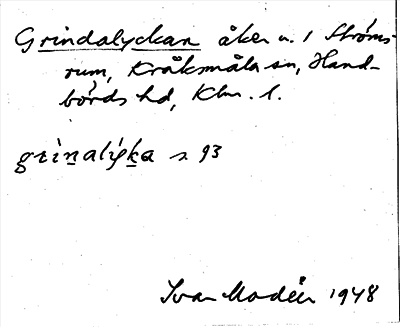 Grindalyckan åker u. 1 Ströms-
rum, Kråksmåla sn, Hand-
börds hd, Klm. l.
grìnalýka s. 93
Ivar Modéer 1948